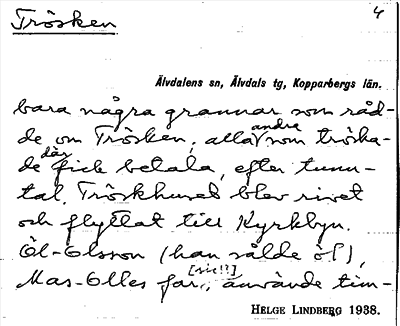 Trösken
4
Älvdalens sn, Älvdals tg, Kopparbergs län.
bara några grannar som råd-
de om Trösken, alla andra som tröska-
de där fick betala, efter tunn-
tal. Tröskhuset blev rivet
och flyttat till Kyrkbyn.
Öl-Olsson (han sålde öl),
Mas-Olles far [sic!?], använde tim-
HELGE LINDBERG 1938.